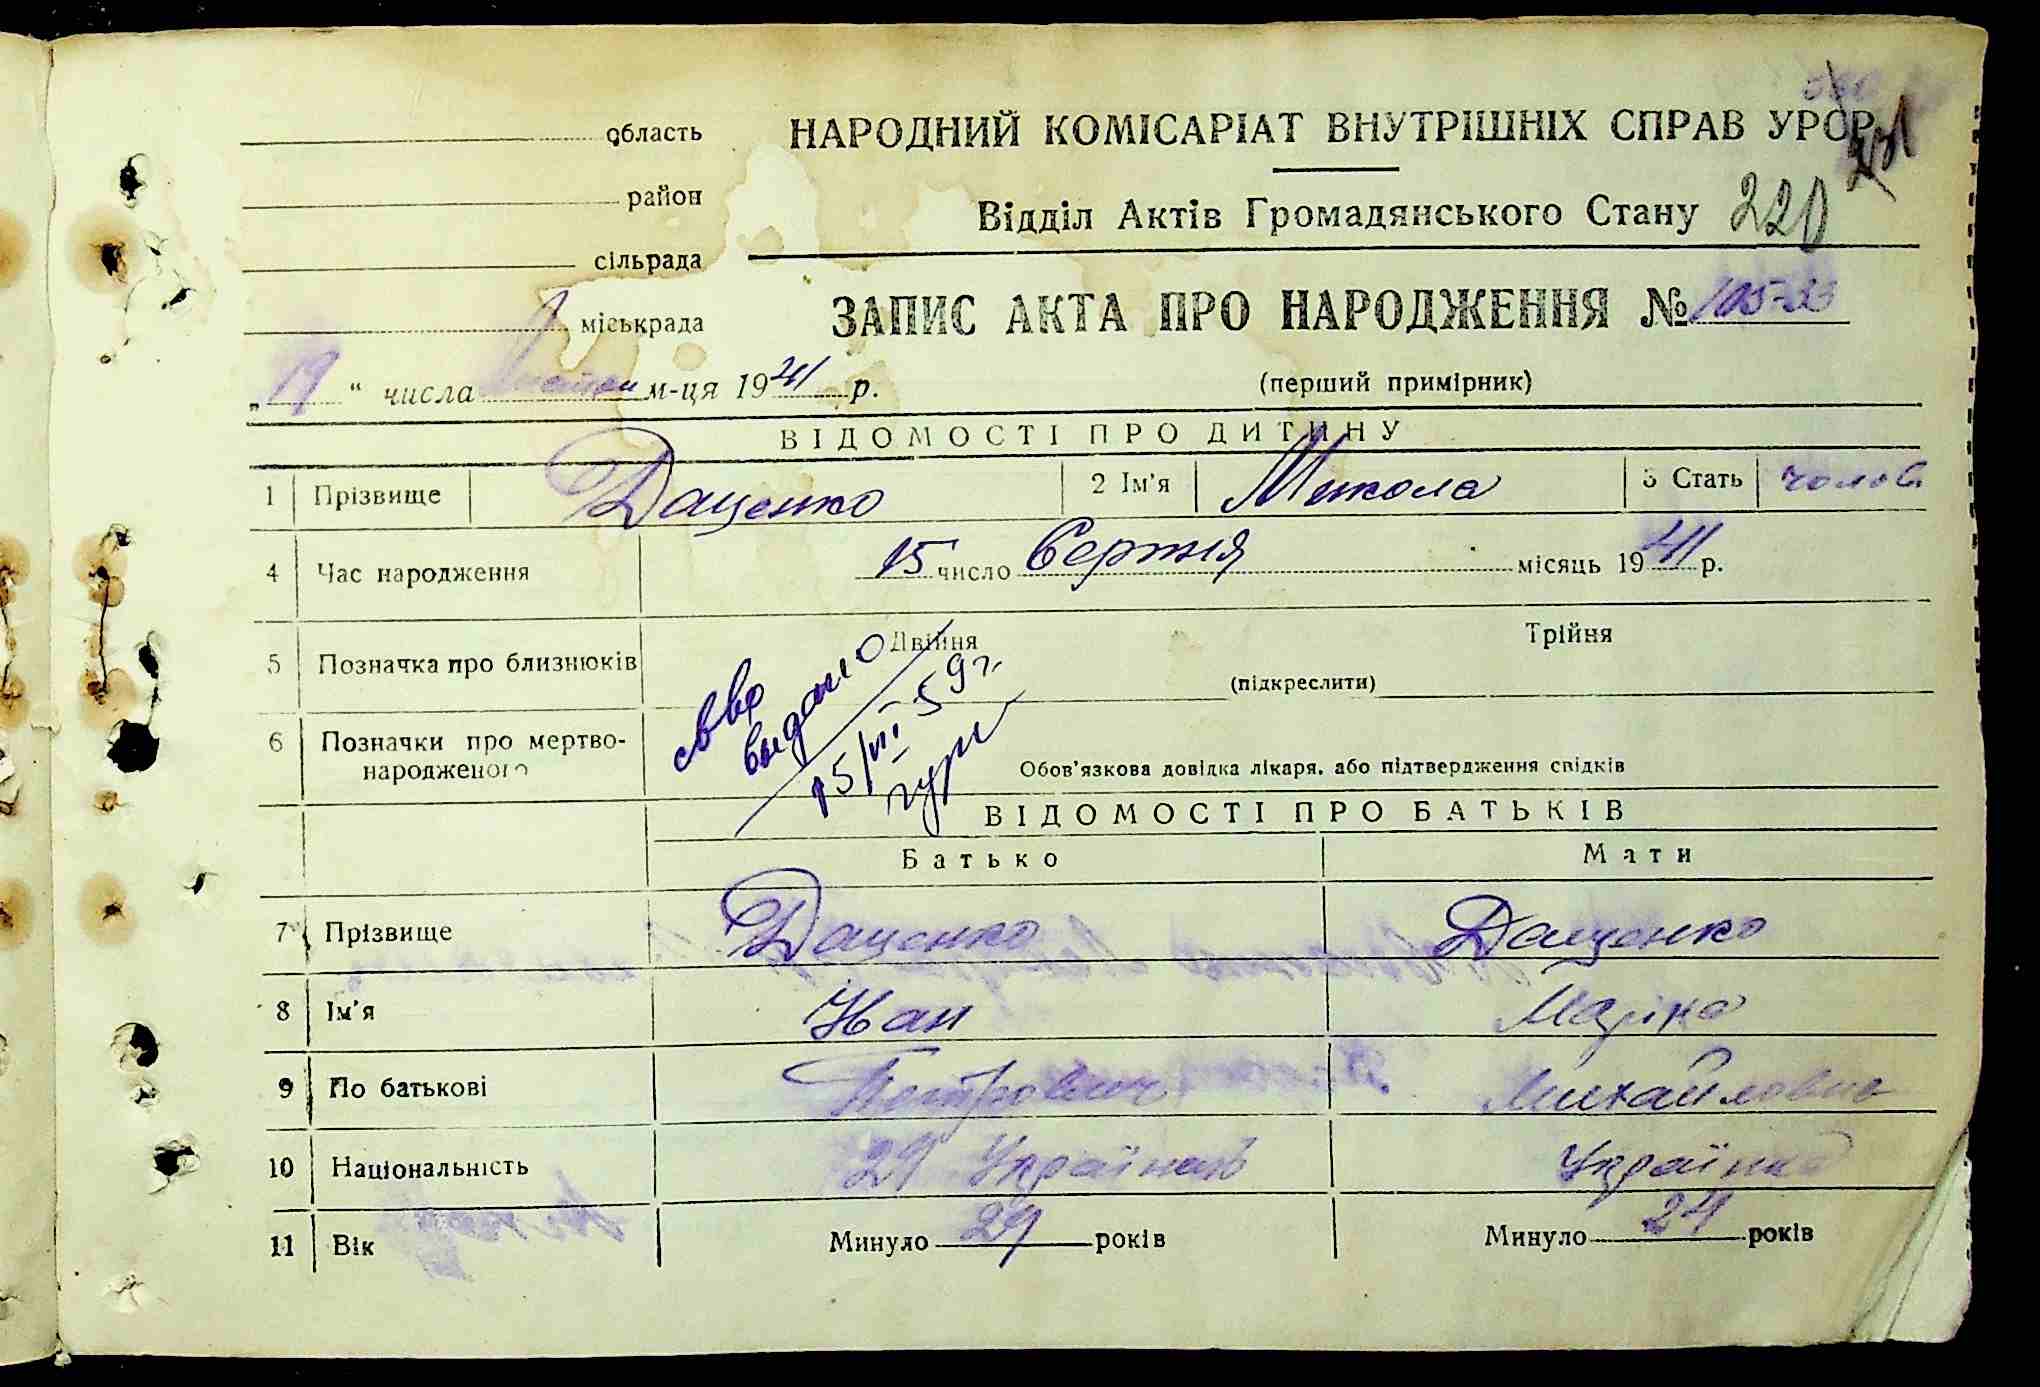 область
район
сільрада
міськрада
НАРОДНИЙ КОМІСАРІАТ ВНУТРІШНІХ СПРАВ УРСР
Відділ Актів Громадянського Стану 220
ЗАПИС АКТА ПРО НАРОДЖЕННЯ № 105-23
„19“ числа м-ця 1941 р.
(перший примірник)
ВІДОМОСТІ ПРО ДИТИНУ
1 Прізвище Даценко 2 Ім'я Микола 3 Стать чолов
4 Час народження 15 число Серпня місяць 1941 р.
5 Позначка про близнюків Двійня Трійня
(підкреслити)
6 Позначки про мертвонародженого
Обов'язкова довідка лікаря, або підтвердження свідків
св во
выдано
15/III 59 г.
ВІДОМОСТІ ПРО БАТЬКІВ
Батько Мати
7 Прізвище Даценко Даценко
8 Ім'я Иван Маріна
9 По батькові Петрович Михайловна
10 Національність 29 Українець Українка
11 Вік Минуло 29 років Минуло 24 років